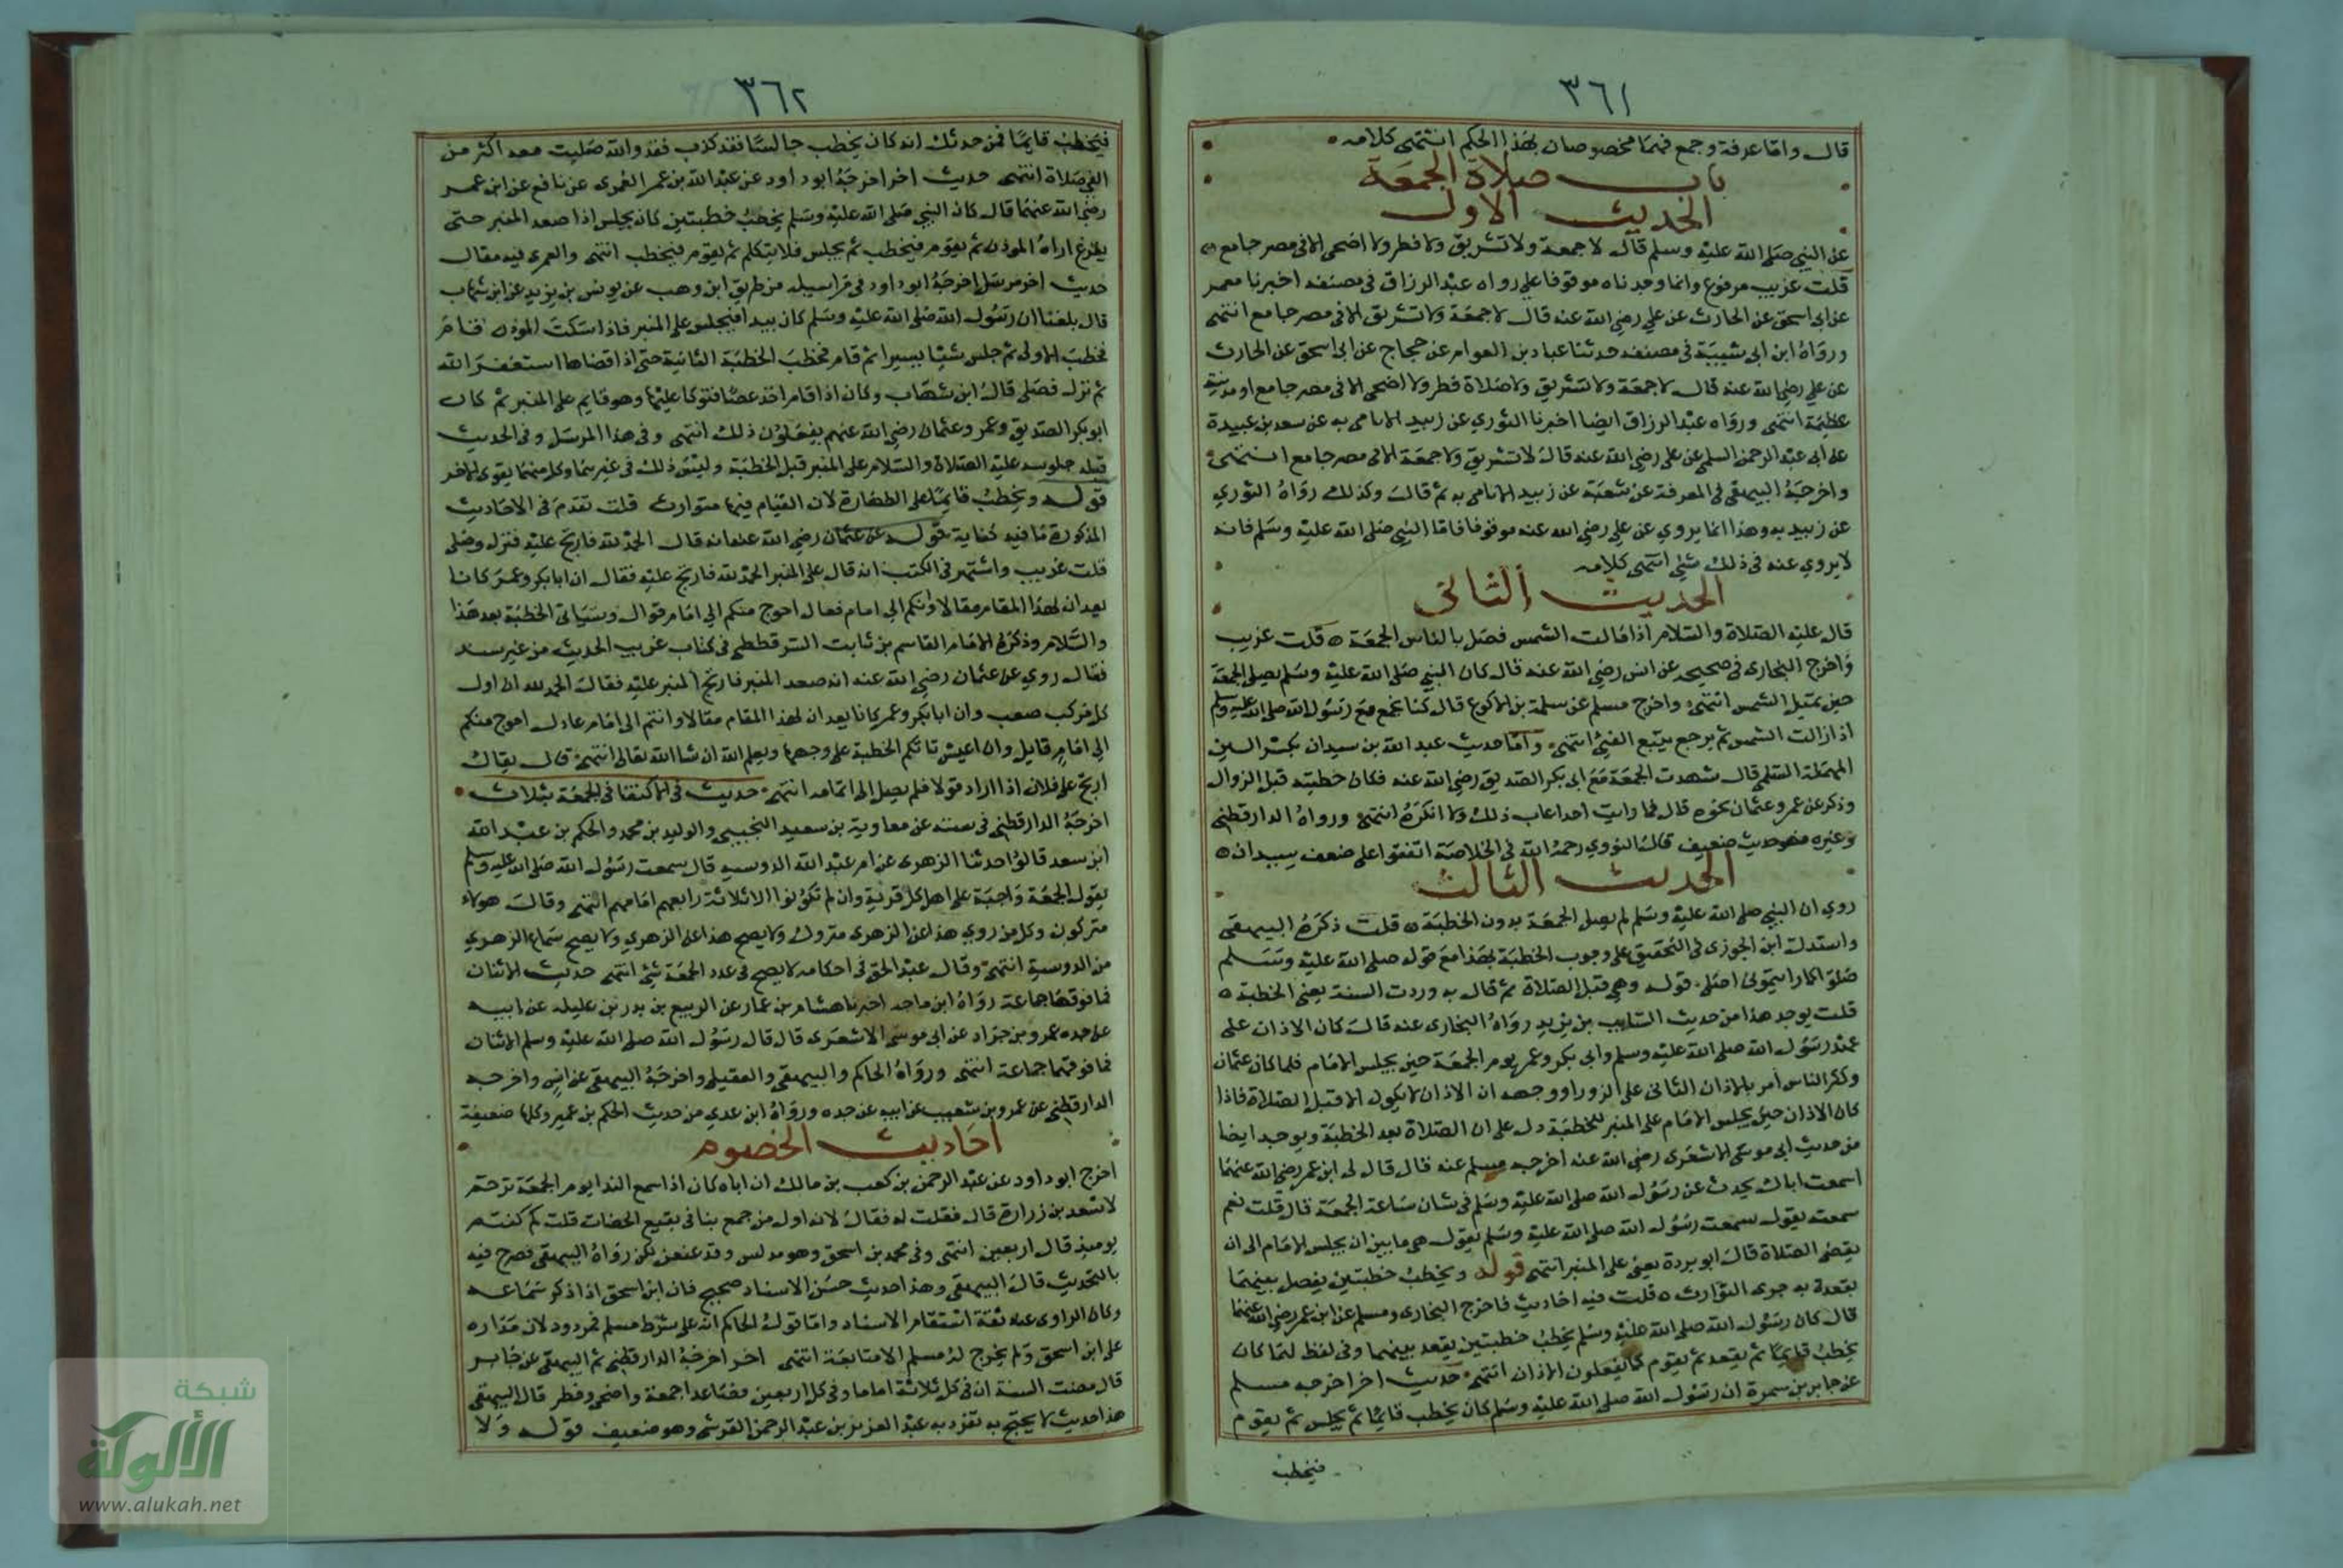 ٣٦١
قال واما عرفة وجمع فهما مخصوصان بهذا الحكم انتهى كلامه
باب صلاة الجمعة
الحديث الاول
عن النبي صلى الله عليه وسلم قال لا جمعة ولا تشريق ولا فطر ولا اضحى الا في مصر جامع
قلت غريب مرفوع وانما وجدناه موقوفا على رواه عبد الرزاق في مصنفه اخبرنا معمر
عن ابي اسحق عن الحارث عن علي رضي الله عنه قال لا جمعة ولا تشريق الا في مصر جامع انتهى
ورواه ابن ابي شيبة في مصنفه حدثنا عباد بن العوام عن حجاج عن ابي اسحق عن الحارث
عن علي رضي الله عنه قال لا جمعة ولا تشريق ولا صلاة فطر ولا اضحى الا في مصر جامع او مدينة
عظيمة انتهى ورواه عبد الرزاق ايضا اخبرنا الثوري عن زبيد الايامى به عن سعد بن عبيدة
عن ابي عبد الرحمن السلمي عن علي رضي الله عنه قال لا تشريق ولا جمعة الا في مصر جامع انتهى
واخرجه البيهقي في المعرفة عن شعبة عن زبيد الايامى به ثم قال وكذلك رواه الثوري
عن زبيد به وهذا انما يروي عن علي رضي الله عنه موقوفا فاما النبي صلى الله عليه وسلم فانه
لا يروي عنه في ذلك شئ انتهى كلامه
الحديث الثاني
قال عليه الصلاة والسلام اذا مالت الشمس فصل بالناس الجمعة قلت غريب
واخرج البخارى في صحيحه عن انس رضي الله عنه قال كان النبي صلى الله عليه وسلم يصلي الجمعة
حين تميل الشمس انتهى واخرج مسلم عن سلمة بن الاكوع قال كنا نجمع مع رسول الله صلى الله عليه وسلم
اذا زالت الشمس ثم نرجع نتبع الفئ انتهى واما حديث عبد الله بن سيدان بكسر السين
المهملة السلمي قال شهدت الجمعة مع ابي بكر الصديق رضي الله عنه فكان خطبته قبل الزوال
وذكر عن عمر وعثمان نحوه قال فما رايت احدا عاب ذلك ولا انكره انتهى ورواه الدارقطني
وغيره فهو حديث ضعيف قال النووي رحمه الله في الخلاصة اتفقوا على ضعف سيدان
الحديث الثالث
روي ان النبي صلى الله عليه وسلم لم يصل الجمعة بدون الخطبة قلت ذكره البيهقى
واستدل ابن الجوزى في التحقيق على وجوب الخطبة بهذا مع قوله صلى الله عليه وسلم
صلوا كما رايتموني اصلي قوله وهي قبل الصلاة ثم قال به وردت السنة يعني الخطبة
قلت يوجد هذا من حديث السايب بن يزيد رواه البخارى عنه قال كان الاذان على
عهد رسول الله صلى الله عليه وسلم وابي بكر وعمر يوم الجمعة حين يجلس الامام فلما كان عثمان
وكثر الناس امر بالاذان الثاني على الزورا ووجهه ان الاذان لا يكون الا قبل الصلاة فاذا
كان الاذان حين يجلس الامام على المنبر للخطبة دل على ان الصلاة بعد الخطبة ويوجد ايضا
من حديث ابي موسى الاشعرى رضي الله عنه اخرجه مسلم عنه قال قال لي ابن عمر رضي الله عنهما
اسمعت اباك يحدث عن رسول الله صلى الله عليه وسلم في شان ساعة الجمعة قال قلت نعم
سمعته يقول سمعت رسول الله صلى الله عليه وسلم يقول هي ما بين ان يجلس الامام الى ان
يقضى الصلاة قال ابو بردة يعني على المنبر انتهى قوله ويخطب خطبتين يفصل بينهما
بقعدة به جرى التوارث قلت فيه احاديث فاخرج البخارى ومسلم عن ابن عمر رضي الله عنهما
قال كان رسول الله صلى الله عليه وسلم يخطب خطبتين يقعد بينهما وفي لفظ لهما كان
يخطب قايما ثم يقعد ثم يقوم كما يفعلون الاذان انتهى حديث اخر اخرجه مسلم
عن جابر بن سمرة ان رسول الله صلى الله عليه وسلم كان يخطب قايما ثم يجلس ثم يقوم
فيخطب
٣٦٢
فيخطب قايما فمن حدثك انه كان يخطب جالسا فقد كذب فقد والله صليت معه اكثر من
الفي صلاة انتهى حديث اخر اخرجه ابو داود عن عبد الله بن عمر العمري عن نافع عن ابن عمر
رضي الله عنهما قال كان النبي صلى الله عليه وسلم يخطب خطبتين كان يجلس اذا صعد المنبر حتى
يفرغ اراه الموذن ثم يقوم فيخطب ثم يجلس فلا يتكلم ثم يقوم فيخطب انتهى والعمري فيه مقال
حديث اخر مرسل اخرجه ابو داود في مراسيله من طريق ابن وهب عن يونس بن يزيد عن ابن شهاب
قال بلغنا ان رسول الله صلى الله عليه وسلم كان يبدا فيجلس على المنبر فاذا سكت الموذن قام
فخطب الاولى ثم جلس شيئا يسيرا ثم قام فخطب الخطبة الثانية حتى اذا قضاها استغفر الله
ثم نزل فصلى قال ابن شهاب وكان اذا قام اخذ عصا فتوكا عليها وهو قايم على المنبر ثم كان
ابو بكر الصديق وعمر وعثمان رضي الله عنهم يفعلون ذلك انتهى وفي هذا المرسل وفي الحديث
قبله جلوسه عليه الصلاة والسلام على المنبر قبل الخطبة وليس ذلك في غيرهما وكل منهما يقوى الاخر
قوله ويخطب قايما على الطهارة لان القيام فيها متوارث قلت تقدم في الاحاديث
المذكورة ما فيه كفاية قوله عن عثمان رضي الله عنه انه قال الحمد لله فارتج عليه فنزل وصلى
قلت غريب واشتهر في الكتب انه قال على المنبر الحمد لله فارتج عليه فقال ان ابا بكر وعمر كانا
يعدان لهذا المقام مقالا وانكم الى امام فعال احوج منكم الى امام قوال وسياتى الخطبة بعد هذا
والسلام وذكره الامام القاسم بن ثابت السرقسطي في كتاب غريب الحديث من غير سند
فقال روي عن عثمان رضي الله عنه انه صعد المنبر فارتج عليه فقال الحمد لله ان اول
كل مركب صعب وان ابا بكر وعمر كانا يعدان لهذا المقام مقالا وانتم الى امام عادل احوج منكم
الى امام قايل وان اعيش تاتكم الخطبة على وجهها ويعلم الله ان شا الله تعالى انتهى قال يقال
ارتج على فلان اذا اراد قولا فلم يصل الى اتمامه انتهى حديث في الاكتفا في الجمعة بثلاث
اخرجه الدارقطني في سننه عن معاوية بن سعيد التجيبي والوليد بن محمد والحكم بن عبد الله
ابن سعد قالوا حدثنا الزهرى عن ام عبد الله الدوسية قال سمعت رسول الله صلى الله عليه وسلم
يقول الجمعة واجبة على اهل كل قرية وان لم تكونوا الا ثلاثة رابعهم امامهم انتهى وقال هولاء
متركون وكل من روي هذا عن الزهرى متروك ولا يصح هذا عن الزهري ولا يصح سماع الزهري
من الدوسية انتهى وقال عبد الحق في احكامه لا يصح في عدد الجمعة شئ انتهى حديث الاثنان
فما فوقهما جماعة رواه ابن ماجه اخبرنا هشام بن عمار عن الربيع بن بدر بن عليله عن ابيه
عن جده عمرو بن جراد عن ابي موسى الاشعرى قال قال رسول الله صلى الله عليه وسلم الاثنان
فما فوقهما جماعة انتهى ورواه الحاكم والبيهقي والعقيلي واخرجه البيهقي عن انس واخرجه
الدارقطني عن عمرو بن شعيب عن ابيه عن جده ورواه ابن عدي من حديث الحكم بن عمير وكلها ضعيفة
احاديث الخصوم
اخرج ابو داود عن عبد الرحمن بن كعب بن مالك ان اباه كان اذا سمع الندا يوم الجمعة ترحم
لاسعد بن زرارة قال فقلت له فقال لانه اول من جمع بنا في بقيع الخضات قلت كم كنتم
يوميذ قال اربعين انتهى وفي محمد بن اسحق وهو مدلس وقد عنعن لكن رواه البيهقي فصرح فيه
بالتحديث قال البيهقي وهذا حديث حسن الاسناد صحيح فان ابن اسحق اذا ذكر سماعه
وكان الراوى عنه ثقة استقام الاسناد واما قول الحاكم انه على شرط مسلم فمردود لان مداره
على ابن اسحق ولم يخرج له مسلم الا متابعة انتهى اخر اخرجه الدارقطني ثم البيهقي عن جابر
قال مضت السنة ان في كل ثلاثة اماما وفي كل اربعين فصاعدا جمعة واضحى وفطر قال البيهقي
هذا حديث لا يحتج به تفرد به عبد العزيز بن عبد الرحمن القرشي وهو ضعيف قوله ولا
شبكة
الألوكة
www.alukah.net